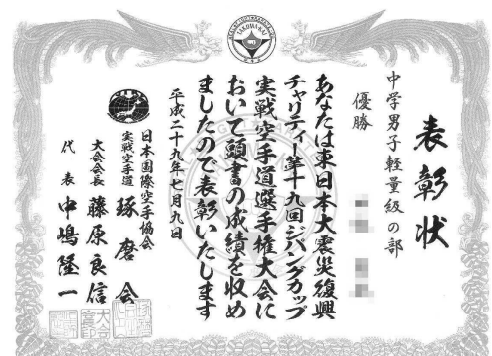 表彰状
中学男子軽量級の部
優勝
あなたは東日本大震災復興
チャリティー第十九回ジパングカップ
実戦空手道選手権大会に
おいて頭書の成績を収め
ましたので表彰いたします
平成二十九年七月九日
日本国際空手協会
実戦空手道 琢磨会
大会会長 藤原良信
代表 中嶋隆一
TAKUMAKAI